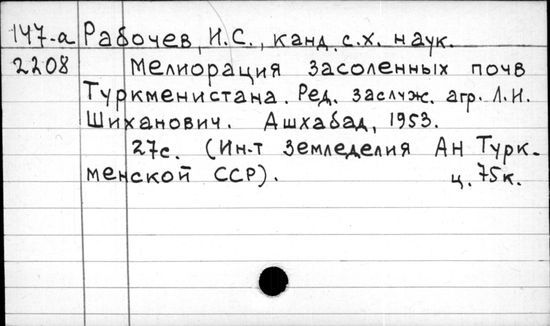 147-а Рабочев, И.С., канд. с.х. наук.
2208 Мелиорация засоленных почв
Туркменистана. Ред. заслуж. агр. Л.И.
Шиханович. Ашхабад, 1953.
27с. (Ин-т Земледелия Ан Турк-
менской ССР). ц. 75к.